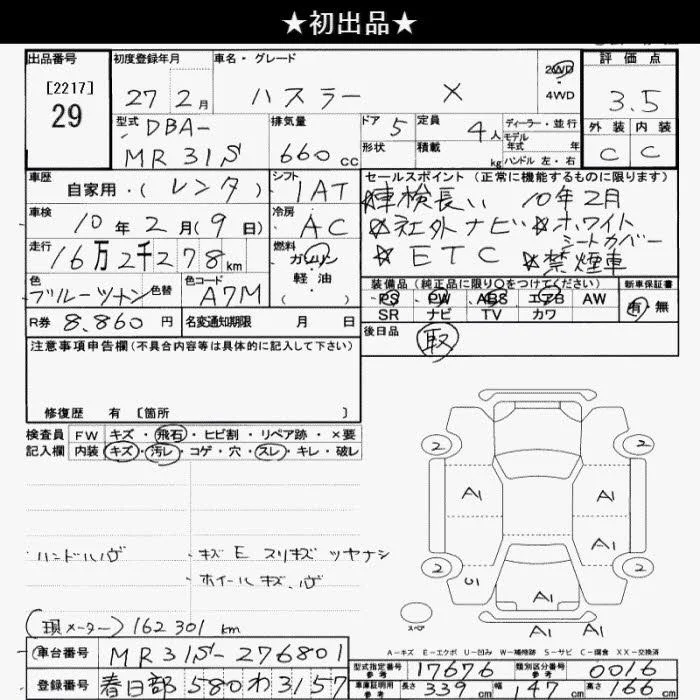 ★初出品★
出品番号 初度登録年月 車名・グレード 評価点
[2217] 2WD
29 27 2月 ハスラー X 4WD 3.5
型式 DBA- 排気量 ドア 5 定員 4人 ディーラー・並行 外装 内装
モデル
MR31S 660cc 形状 積載 kg 年式 年 ハンドル 左・右 C C
車歴 自家用・(レンタ) シフト 1AT セールスポイント (正常に機能するものに限ります)
☆車検長い 10年2月
車検 10年2月(9日) 冷房 AC ☆社外ナビ ☆ホワイトシートカバー
走行 16万2千278km 燃料 ガソリン ☆ETC ☆禁煙車
軽油
( )
色 ブルーツートン 色替 色コード A7M 装備品 (純正品に限り○をつけてください) 新車保証書
PS PW ABS エアB AW 有・無
R券 8,860円 名変通知期限 月 日 SR ナビ TV カワ
後日品 取
注意事項申告欄(不具合内容等は具体的に記入して下さい)
修復歴 有 [箇所 ]
検査員 FW キズ・飛石・ヒビ割・リペア跡・×要
記入欄 内装 キズ・汚レ・コゲ・穴・スレ・キレ・破レ
2 2
A1 A1
A1
2 2
U1 A1
スペア A1 A1
・ハンドルハゲ ・キズ E スリキズ ツヤナシ
・ホイールキズ、ハゲ
(現メーター) 162301 km
A-キズ E-エクボ U-凹み W-補修跡 S-サビ C-腐食 XX-交換済
車台番号 MR31S-276801 型式指定番号 参考 17676 類別区分番号 参考 0016
登録番号 春日部 580 わ 3157 車庫証明用 参考 長さ 339cm 幅 147cm 高さ 166cm